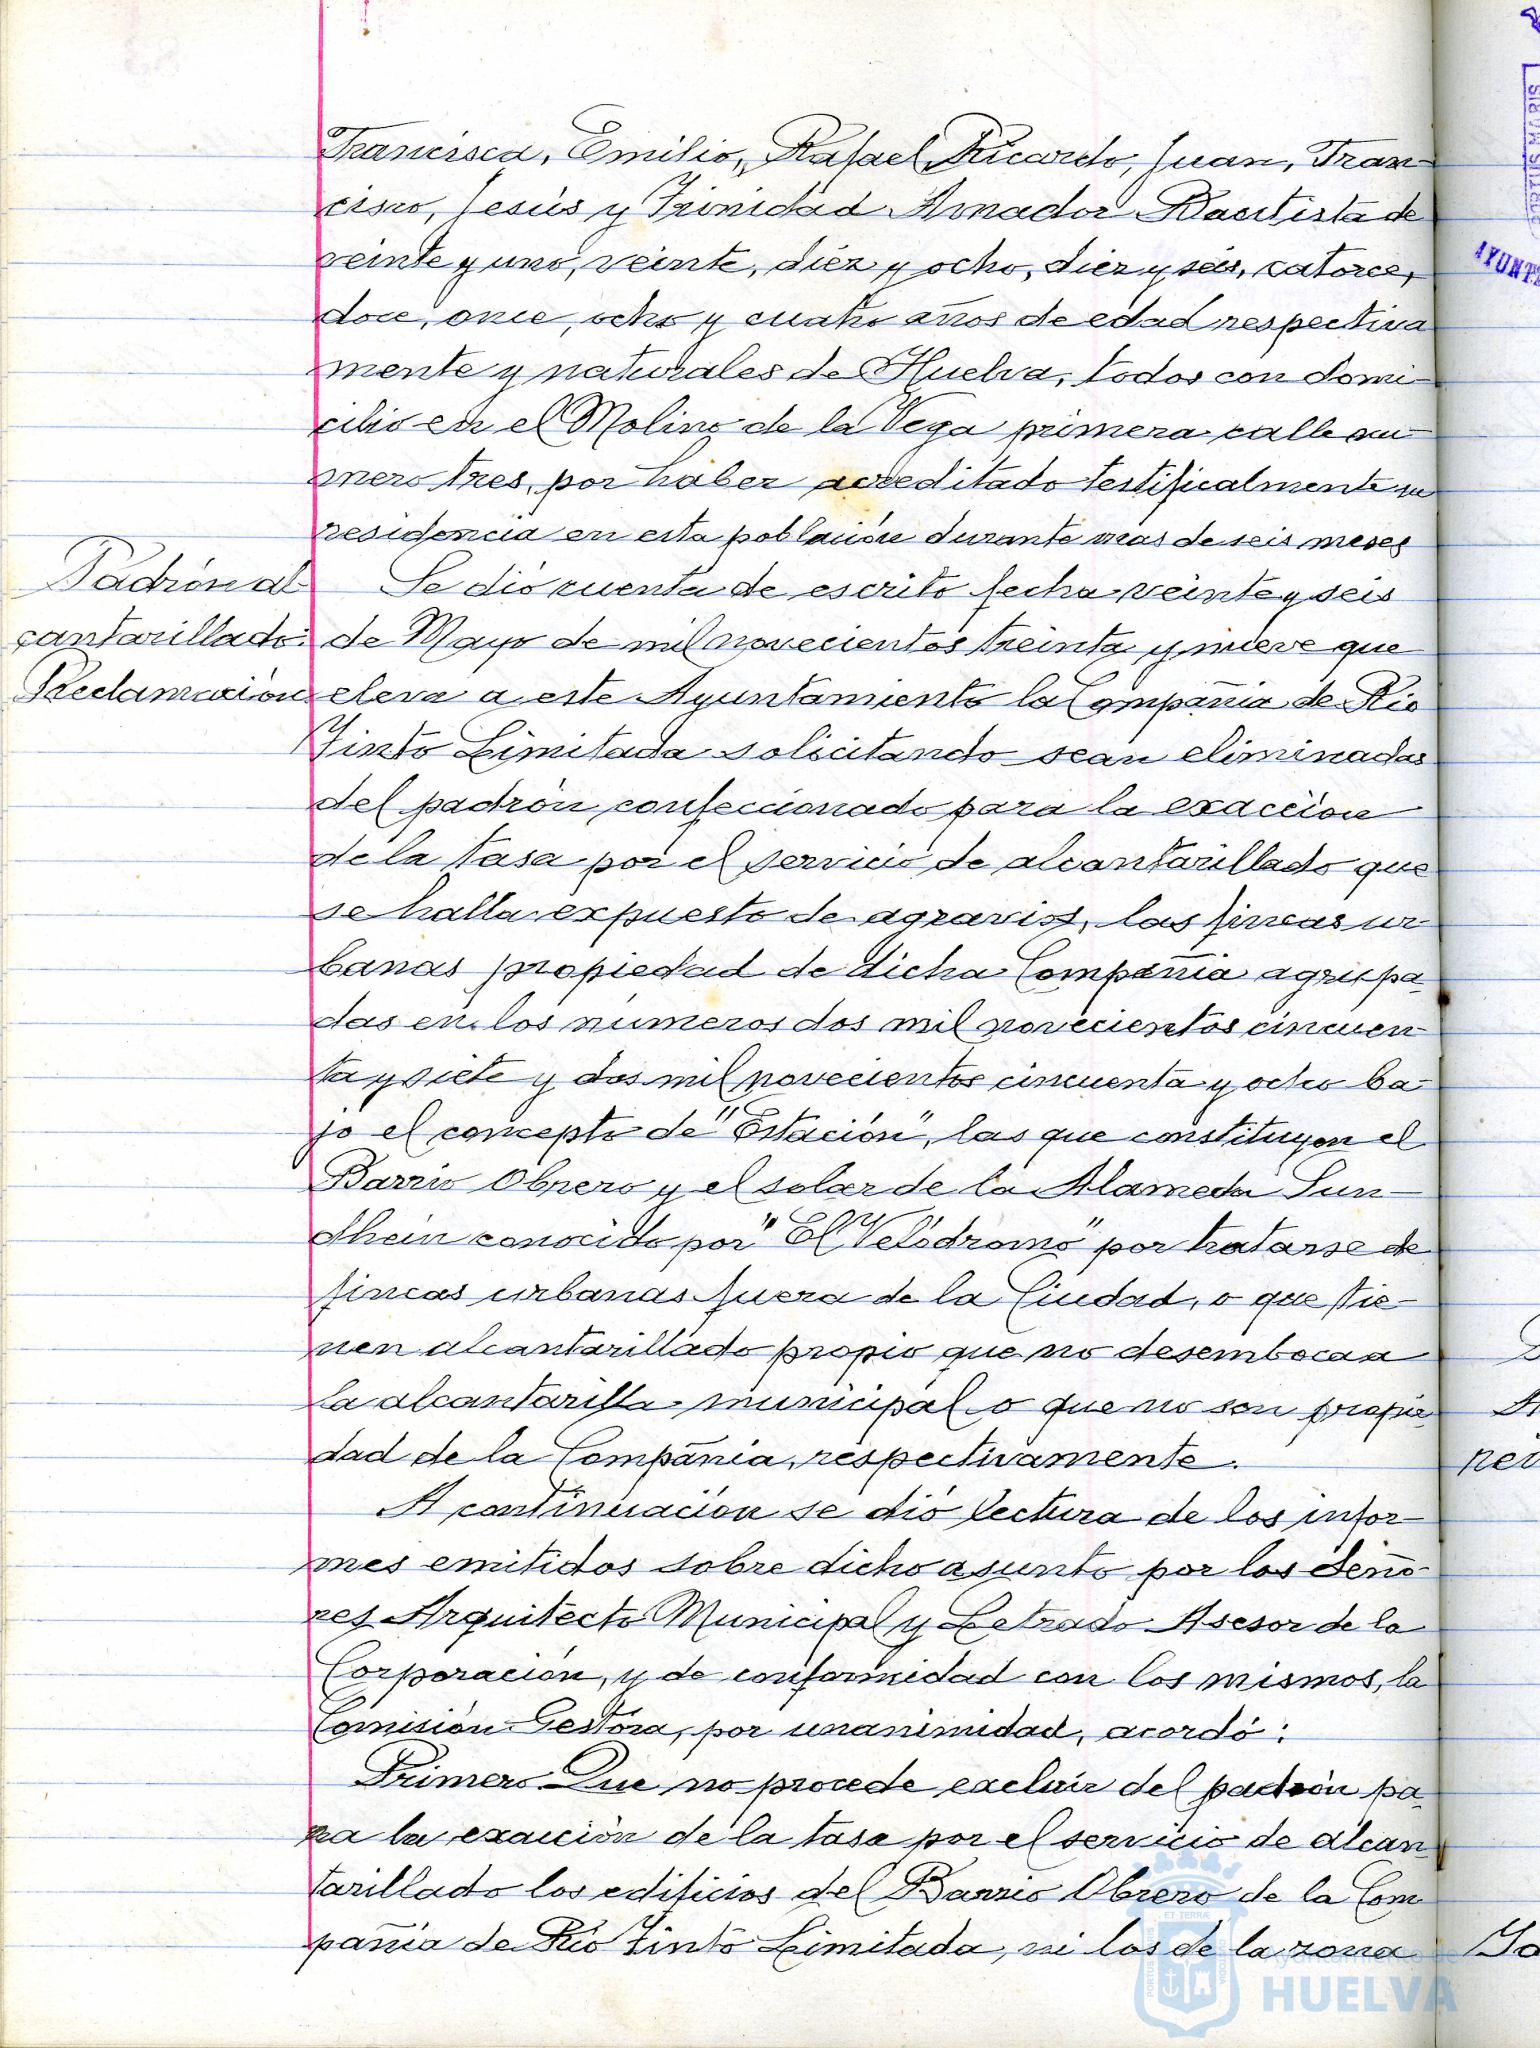 Francisca, Emilio, Rafael Ricardo, Juan, Fran-
cisco, Jesús y Trinidad Amador Bautista de
veinte y uno, veinte, diez y ocho, diez y seis, catorce,
doce, once, ocho y cuatro años de edad respectiva
mente y naturales de Huelva, todos con domi-
cilio en el Molino de la Vega primera calle nú-
mero tres, por haber acreditado testificalmente su
residencia en esta población durante mas de seis meses
Padrón al-
cantarillado.
Reclamación
Se dió cuenta de escrito fecha veinte y seis
de Mayo de mil novecientos treinta y nueve que
eleva a este Ayuntamiento la Compañia de Rio
Tinto Limitada solicitando sean eliminadas
del padrón confeccionado para la exacción
de la tasa por el servicio de alcantarillado que
se halla expuesto de agravios, las fincas ur-
banas propiedad de dicha Compañia agrupa-
das en los números dos mil novecientos cincuen-
ta y siete y dos mil novecientos cincuenta y ocho ba-
jo el concepto de "Estación", las que constituyen el
Barrio Obrero y el solar de la Alameda Sun-
dhein conocido por "El Velódromo" por tratarse de
fincas urbanas fuera de la Ciudad, o que tie-
nen alcantarillado propio que no desemboca a
la alcantarilla municipal o que no son propie-
dad de la Compañia, respectivamente.
A continuación se dió lectura de los infor-
mes emitidos sobre dicho asunto por los Seño-
res Arquitecto Municipal y Letrado Asesor de la
Corporación, y de conformidad con los mismos, la
Comisión Gestora, por unanimidad, acordó:
Primero Que no procede excluir del padrón pa-
ra la exacción de la tasa por el servicio de alcan
tarillado los edificios del Barrio Obrero de la Com
pañia de Rio Tinto Limitada, ni los de la zona
Ayuntamiento de
HUELVA
PORTUS MARIS
ET TERRÆ
CUSTODIA
PORTUS MARIS
AYUNT